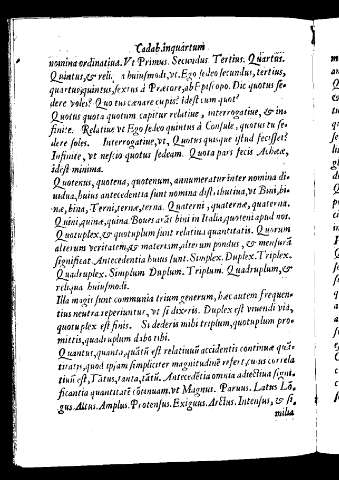 Cadab. in quartum
nomina ordinatiua. Vt Primus. Secundus Tertius. Quartus.
Quintus, & reli a huiusmodi, vt. Ego sedeo secundus, tertius,
quartus, quintus, sextus à Prætore, ab Episcopo. Dic quotus se-
dere voles? Quotus cœnare cupis? idest cum quot?
Quotus quota quotum capitur relatiue, interrogatiue, & in-
finite. Relatiue vt Ego sedeo quintus à Consule, quotus tu se-
dere soles. Interrogatiue, vt, Quotus quisque istud fecisset?
Infinite, vt nescio quotus sedeam. Quota pars fecis Achææ,
idest minima.
Quotenus, quotena, quotenum, annumeratur inter nomina di-
uidua, huius antecedentia sunt nomina distributiua, vt Bini, bi-
næ, bina, Terni, ternæ, terna. Quaterni, quaternæ, quaterna.
Quini, quinæ, quina Boues arāt bini in Italia, quoteni apud nos.
Quotuplex, & quotuplum sunt relatiua quantitatis. Quorum
alterum veritatem, & materiam, alterum pondus, & mensurā
significat. Antecedentia huius sunt. Simplex. Duplex. Triplex.
Quadruplex. Simplum Duplum. Triplum. Quadruplum, &
reliqua huiusmodi.
Illa magis sunt communia trium generum, hæc autem frequen-
tius neutra reperiuntur, vt si dixeris. Duplex est viuendi via,
quotuplex est finis. Si dederis mihi triplum, quotuplum pro-
mittis, quadruplum dabo tibi.
Quantus, quanta, quātū est relatiuū accidentis continuæ quā-
titatis, quod ipsam simpliciter magnitudinē refert, cuius correla
tiuū est, Tātus, tanta, tātū. Antecedētia omnia adiectiua signi-
ficantia quantitatē cōtinuam, vt Magnus. Paruus. Latus Lō-
gus. Altus. Amplus. Protensus. Exiguus. Arctus. Intensus, & si-
milia